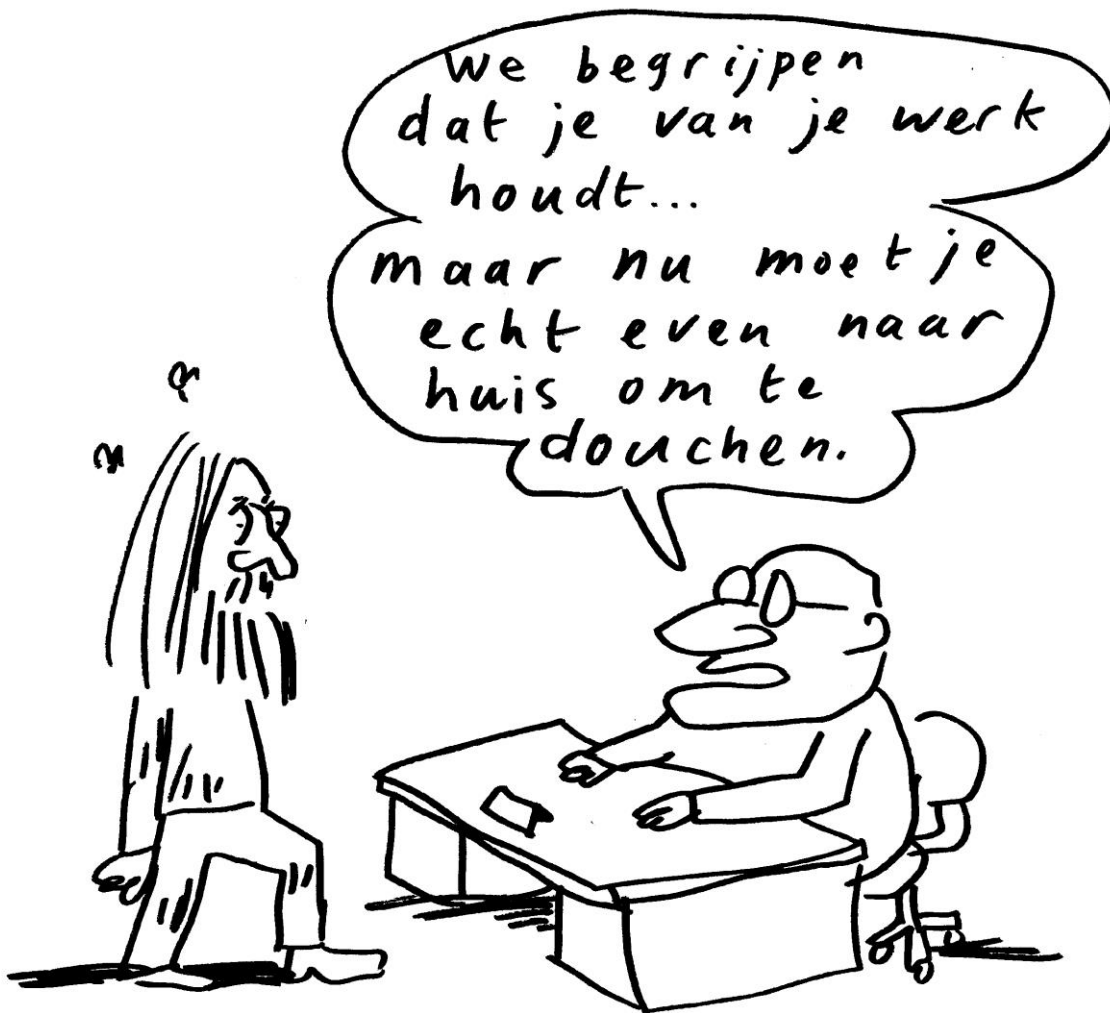 We begrijpen
dat je van je werk
houdt...
maar nu moet je
echt even naar
huis om te
douchen.